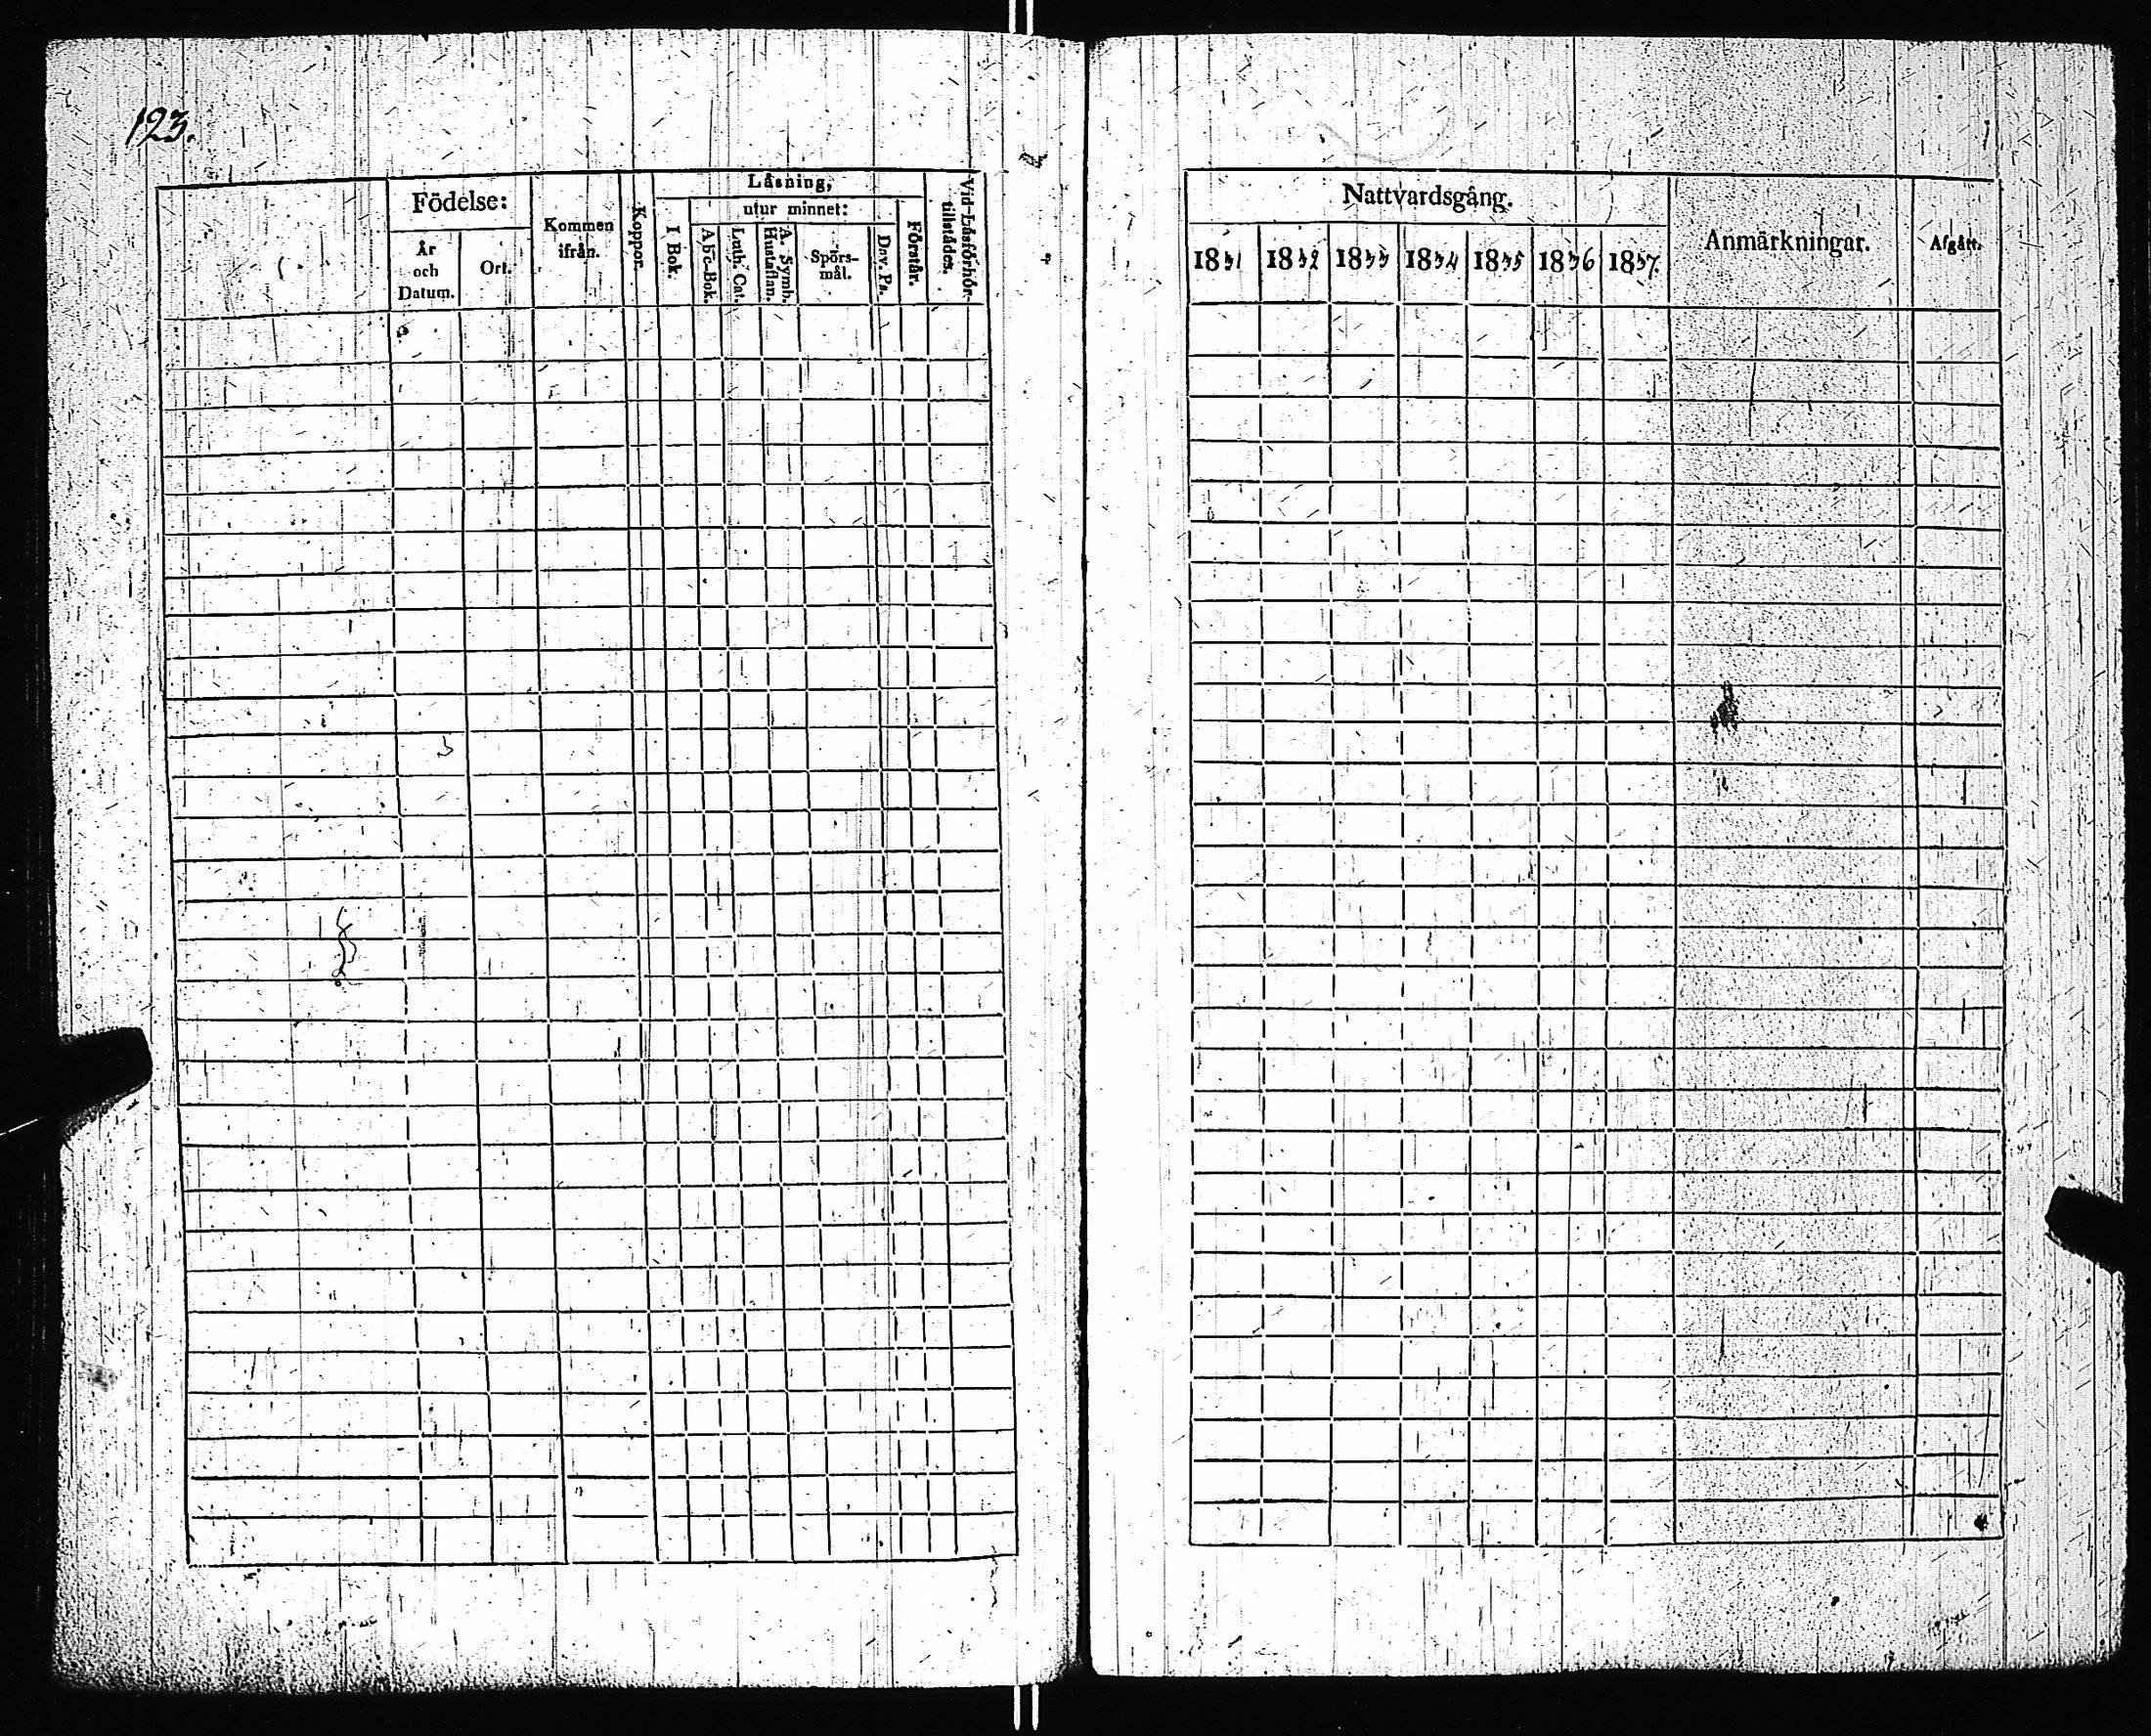 123.
Födelse:
År
och
Datum.
Ort.
Kommen
ifrån.
Koppor.
Låsning,
utur minnet:
I Bok.
Abc-Bok.
Luth. Cat.
A. Symb.
Hustaflan.
Spörs-
mål.
Dav. Ps.
Förstår.
Vid Låsförhör
tillstådes.
Nattvardsgång.
1831 1832 1833 1834 1835 1836 1837.
Anmärkningar.
Afgått.